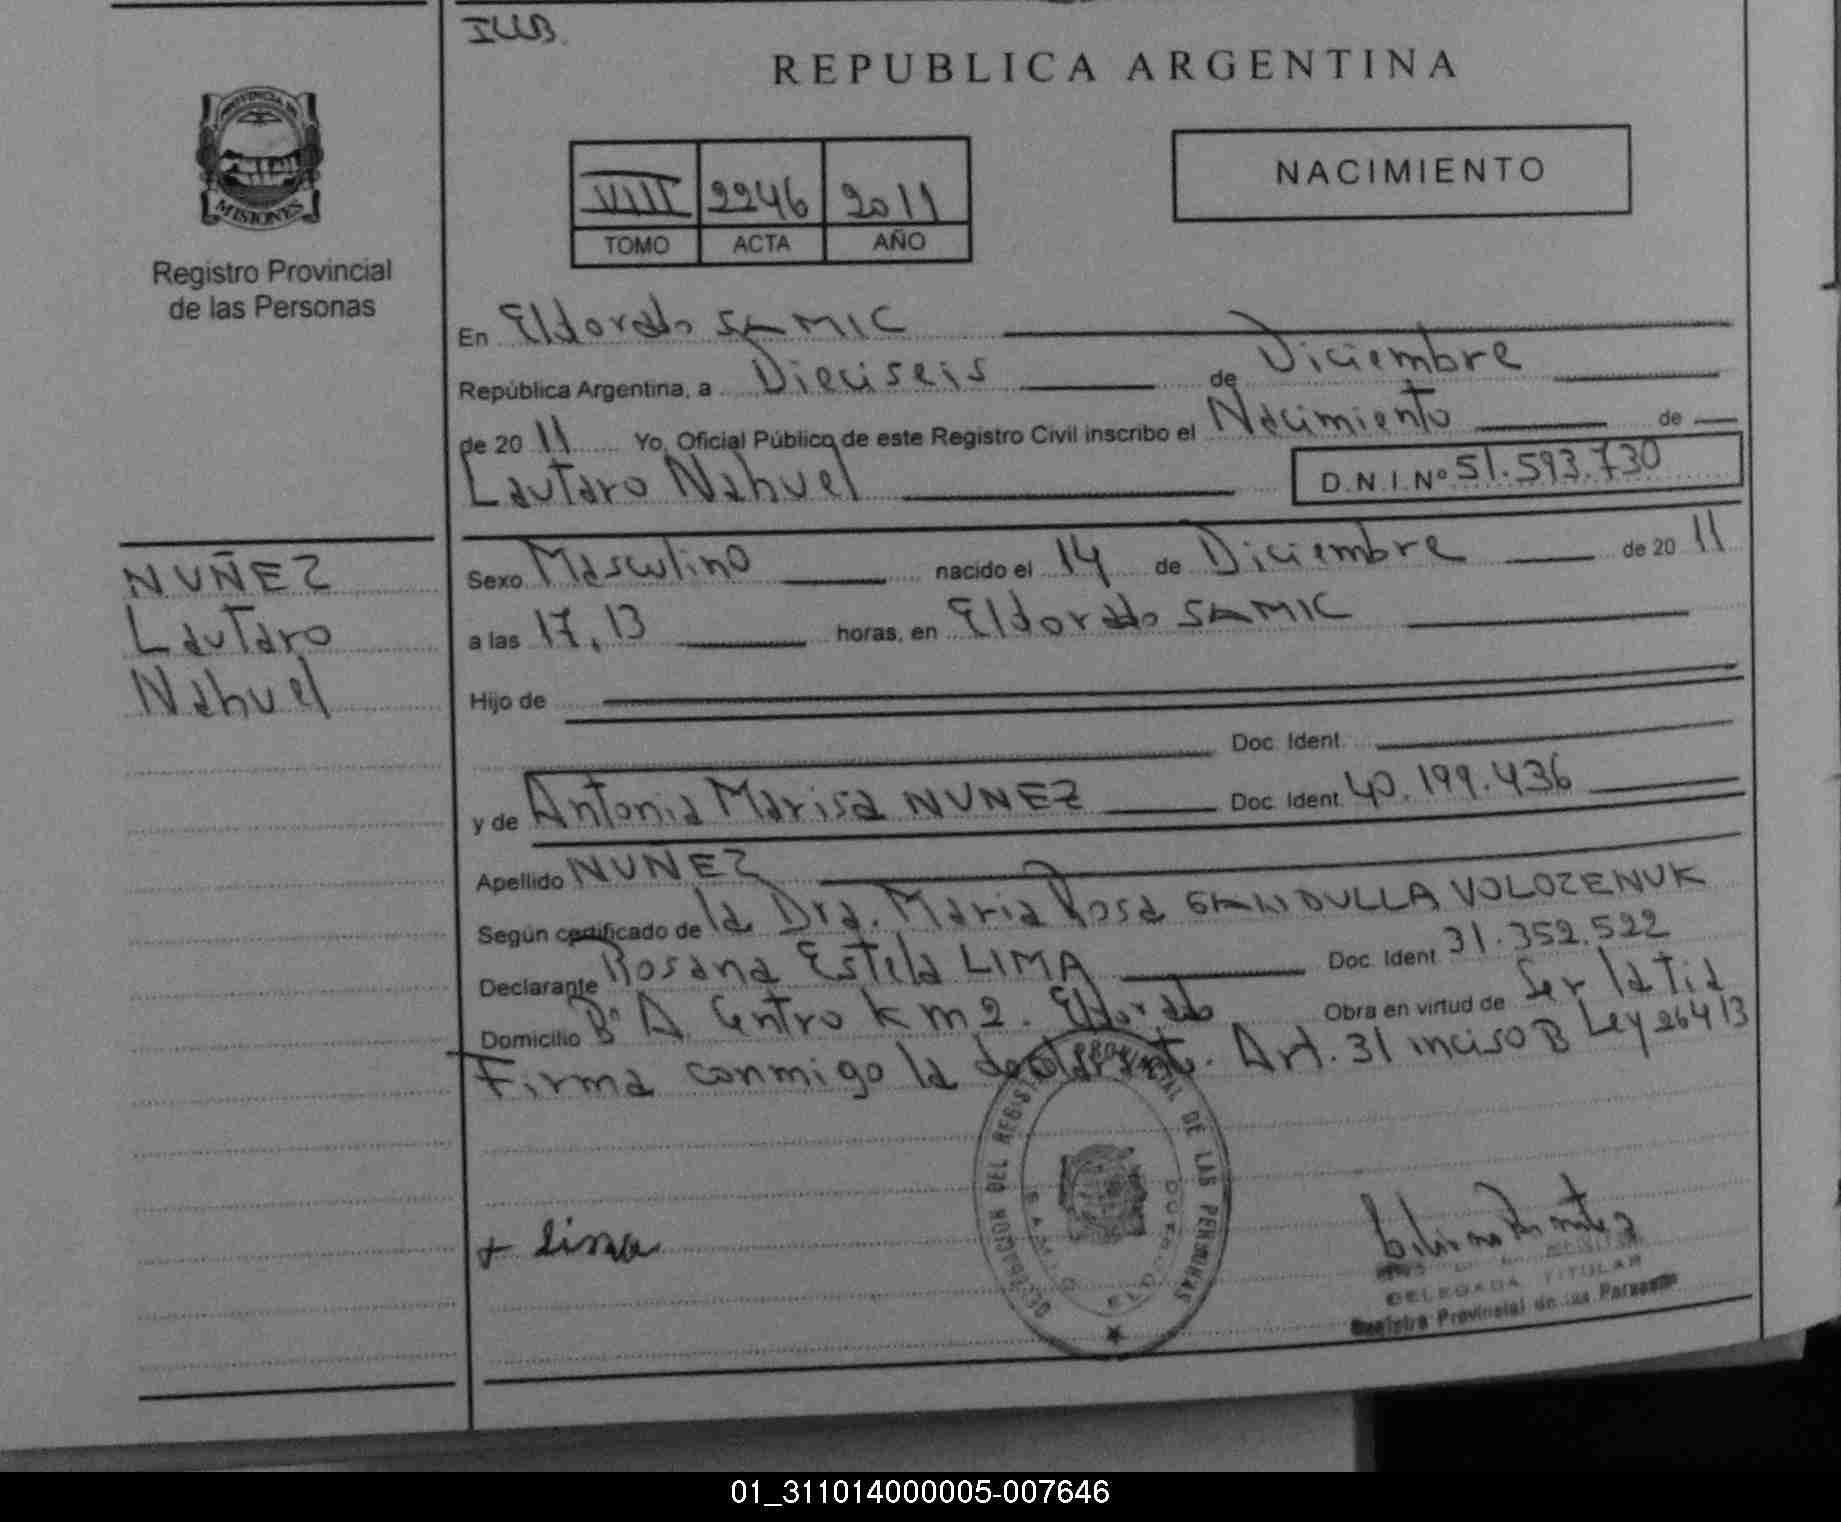 IUB.
REPUBLICA ARGENTINA
PROVINCIA DE
MISIONES
Registro Provincial
de las Personas
NACIMIENTO
VIII 2246 2011
TOMO ACTA AÑO
En Eldorado SAMIC
República Argentina, a Dieciseis de Diciembre
de 20 11 Yo, Oficial Público de este Registro Civil inscribo el Nacimiento de
Lautaro Nahuel D.N.I. Nº 51.593.730
NUÑEZ
Lautaro
Nahuel
Sexo Masculino nacido el 14 de Diciembre de 20 11
a las 17,13 horas, en Eldorado SAMIC
Hijo de
Doc. Ident.
y de Antonia Marisa NUNEZ Doc. Ident 40.199.436
Apellido NUÑEZ
Según certificado de la Dra. Maria Rosa GANDULLA VOLOZENUK
Declarante Rosana Estela LIMA Doc. Ident 31.352.522
Domicilio Bº A. Centro km 2. Eldorado Obra en virtud de Ser la Tia
Firma conmigo la declarante. Art. 31 inciso B Ley 26413
DELEGACION DEL REGISTRO PROVINCIAL DE LAS PERSONAS
ELDORADO
+ Lima
DELEGADA TITULAR
Registro Provincial de las Personas
01_311014000005-007646